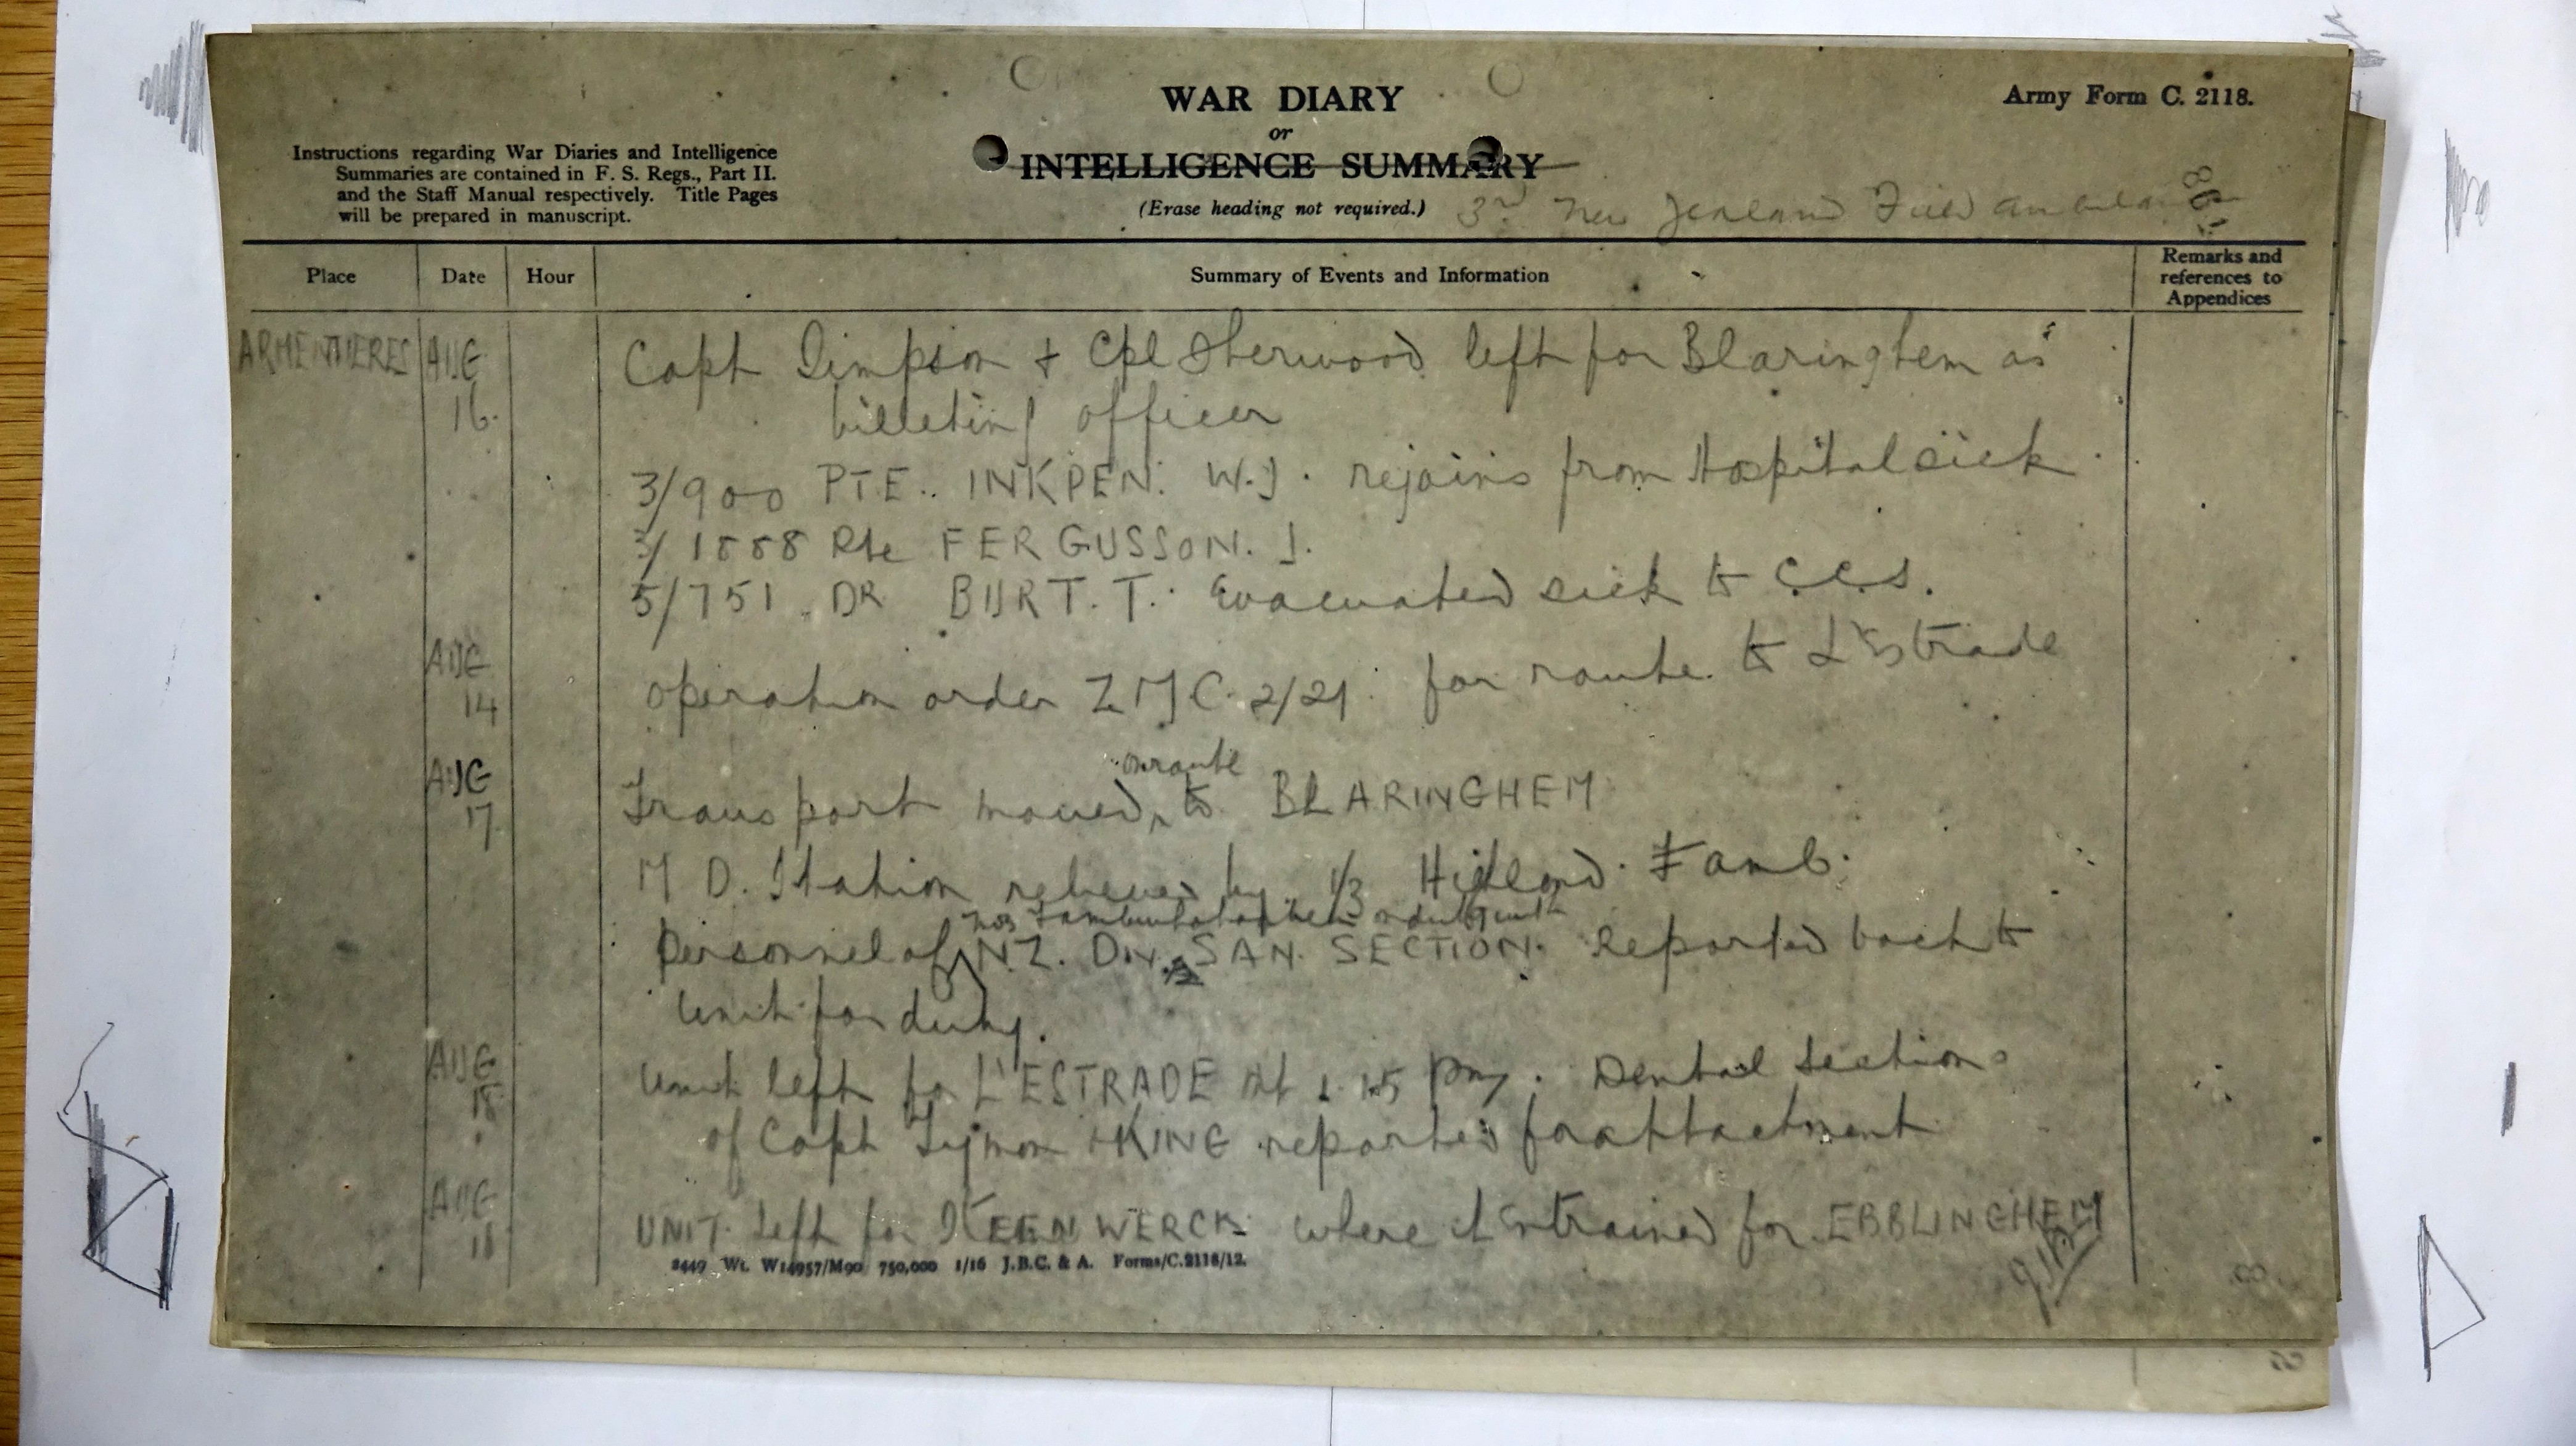 WAR DIARY
or
INTELLIGENCE SUMMARY
(Erase heading not required.)
Army Form C. 2118.
Instructions regarding War Diaries and Intelligence
Summaries are contained in F. S. Regs., Part II.
and the Staff Manual respectively. Title Pages
will be prepared in manuscript.
3rd New Zealand Field Ambulance
Place Date Hour Summary of Events and Information Remarks and references to Appendices
ARMENTIERES AUG 16. Capt Simpson + Cpl Sherwood left for Blaringhem as
billeting officer
3/900 PTE. INKPEN. W.J. rejoins from Hospital sick
3/1888 Pte FERGUSSON. J.
5/751 DR BURT. T. Evacuated sick to C.C.S.
AUG 14 operation order for route to L'Estrade
onroute
AUG 17. Transport moved to BLARINGHEM
M D. Station relieved by 1/3 Highland F amb.
No3
Personnel of N.Z. DN. SAN. SECTION. Reported back to
unit for duty.
AUG 18 Unit left for L'ESTRADE at 1.15 pm. Dental Sections
of Capt + KING reported for attachment
AUG 18 UNIT left for STEENWERCK where it entrained for EBBLINGHEM
2449 Wt. W14957/M90 750,000 1/16 J.B.C. & A. Forms/C.2118/12.